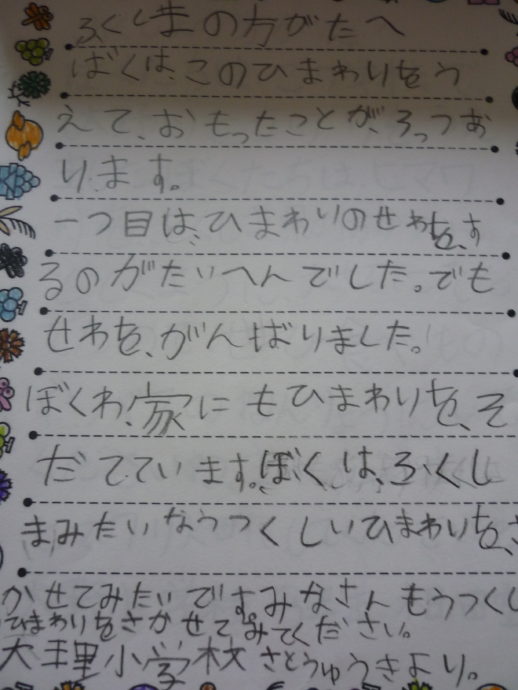 ふくしまの方がたへ
ぼくは、このひまわりをう
えて、おもったことが、ろっつお
ります。
一つ目は、ひまわりのせわを、す
るのがたいへんでした。でも
せわを、がんばりました。
ぼくわ、家にもひまわりを、そ
だてています。ぼくは、ふくし
まみたいなうつくしいひまわりを、さ
かせてみたいです。みなさんもうつくし
いひまわりをさかせてみてください。
大理小学校さとうゆうきより。